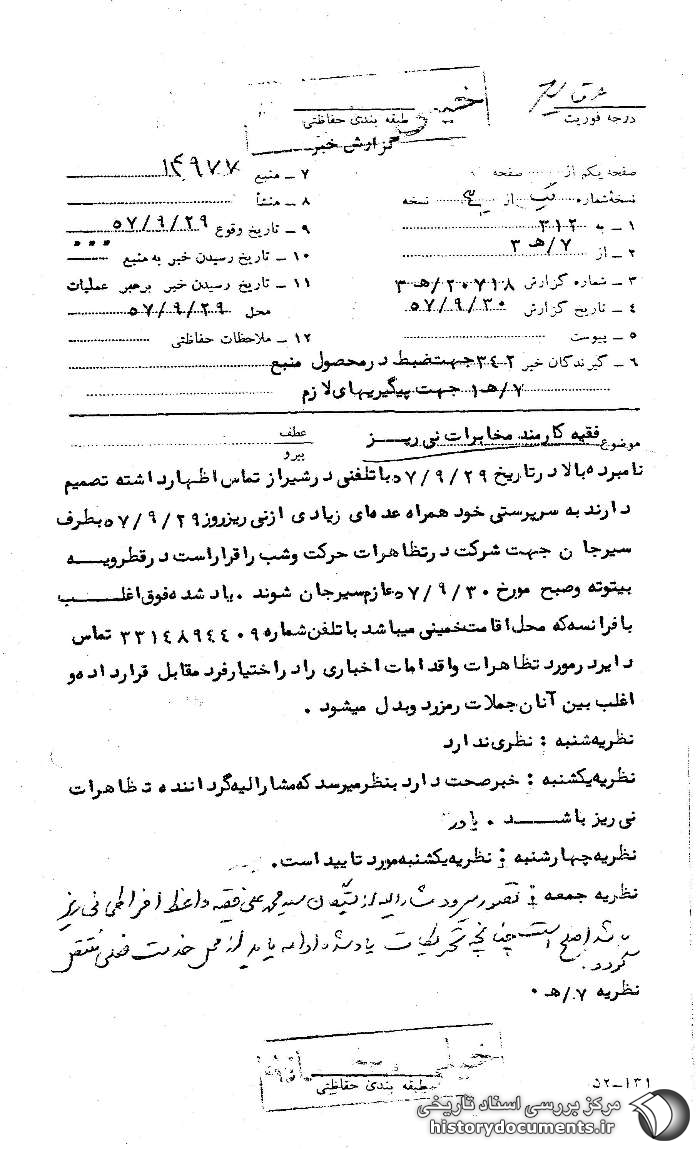 درجه فوریت
خیلی
طبقه بندی حفاظتی
گزارش خبر
صفحه یکم از صفحه
نسخه شماره یک از نسخه
۱ - به ۳۱۲
۲ - از ۷/هـ ۳
۳ - شماره گزارش ۲۰۷۱۸/هـ ۳
۴ - تاریخ گزارش ۵۷/۹/۳۰
۵ - پیوست
۶ - گیرندگان خبر ۳۴۲ جهت ضبط در محصول منبع
۷/هـ ۱ جهت پیگیریهای لازم
۷ - منبع ۱۴۹۷۷
۸ - منشأ
۹ - تاریخ وقوع ۵۷/۹/۲۹
۱۰ - تاریخ رسیدن خبر به منبع
۱۱ - تاریخ رسیدن خبر برهبر عملیات
محل ۵۷/۹/۲۹
۱۲ - ملاحظات حفاظتی
موضوع فقیه کارمند مخابرات نی ریز
عطف
پیرو
نامبرده بالا در تاریخ ۵۷/۹/۲۹ با تلفنی در شیراز تماس اظهار داشته تصمیم
دارند به سرپرستی خود همراه عده ای زیادی از نی ریز روز ۵۷/۹/۲۹ بطرف
سیرجان جهت شرکت در تظاهرات حرکت و شب را قرار است در قطرویه
بیتوته و صبح مورخ ۵۷/۹/۳۰ عازم سیرجان شوند . یاد شده فوق اغلب
با فرانسه که محل اقامت خمینی میباشد با تلفن شماره ۳۳۱۴۸۹۴۴۰۹ تماس
دایر در مورد تظاهرات و اقدامات اخباری را در اختیار فرد مقابل قرار داده و
اغلب بین آنان جملات رمز رد و بدل میشود .
نظریه شنبه : نظری ندارد
نظریه یکشنبه : خبر صحت دارد بنظر میرسد که مشارالیه گرداننده تظاهرات
نی ریز باشد . یاور
نظریه چهارشنبه : نظریه یکشنبه مورد تایید است .
نظریه جمعه : تصور میرود مشارالیه از بستگان سید محمد علی فقیه واعظ افراطی نی ریز
باشد اصلح است چنانچه تحریکات یادشده ادامه یابد از محل خدمت فعلی منتقل
گردد .
نظریه ۷/هـ .
خیلی
طبقه بندی حفاظتی
۵۲-۱۳۱
مرکز بررسی اسناد تاریخی
historydocuments.ir